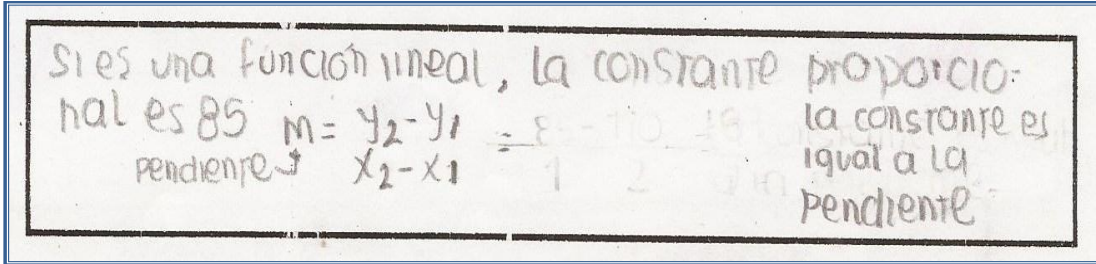 Si es una función lineal, la constante proporcio-
nal es 85 m = y2 - y1 =
pendiente x2 - x1
la constante es
igual a la
pendiente